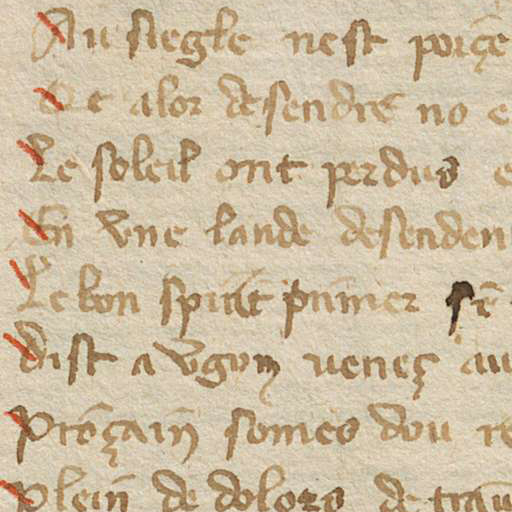 Au siegle nest porçe
De alor desendre no e
Le soleil ont perdus e
En vne lande desenden
Le bon spirit primier
dist a vgon veneç au
Prōçain somes dou re
plein de dolors de trau